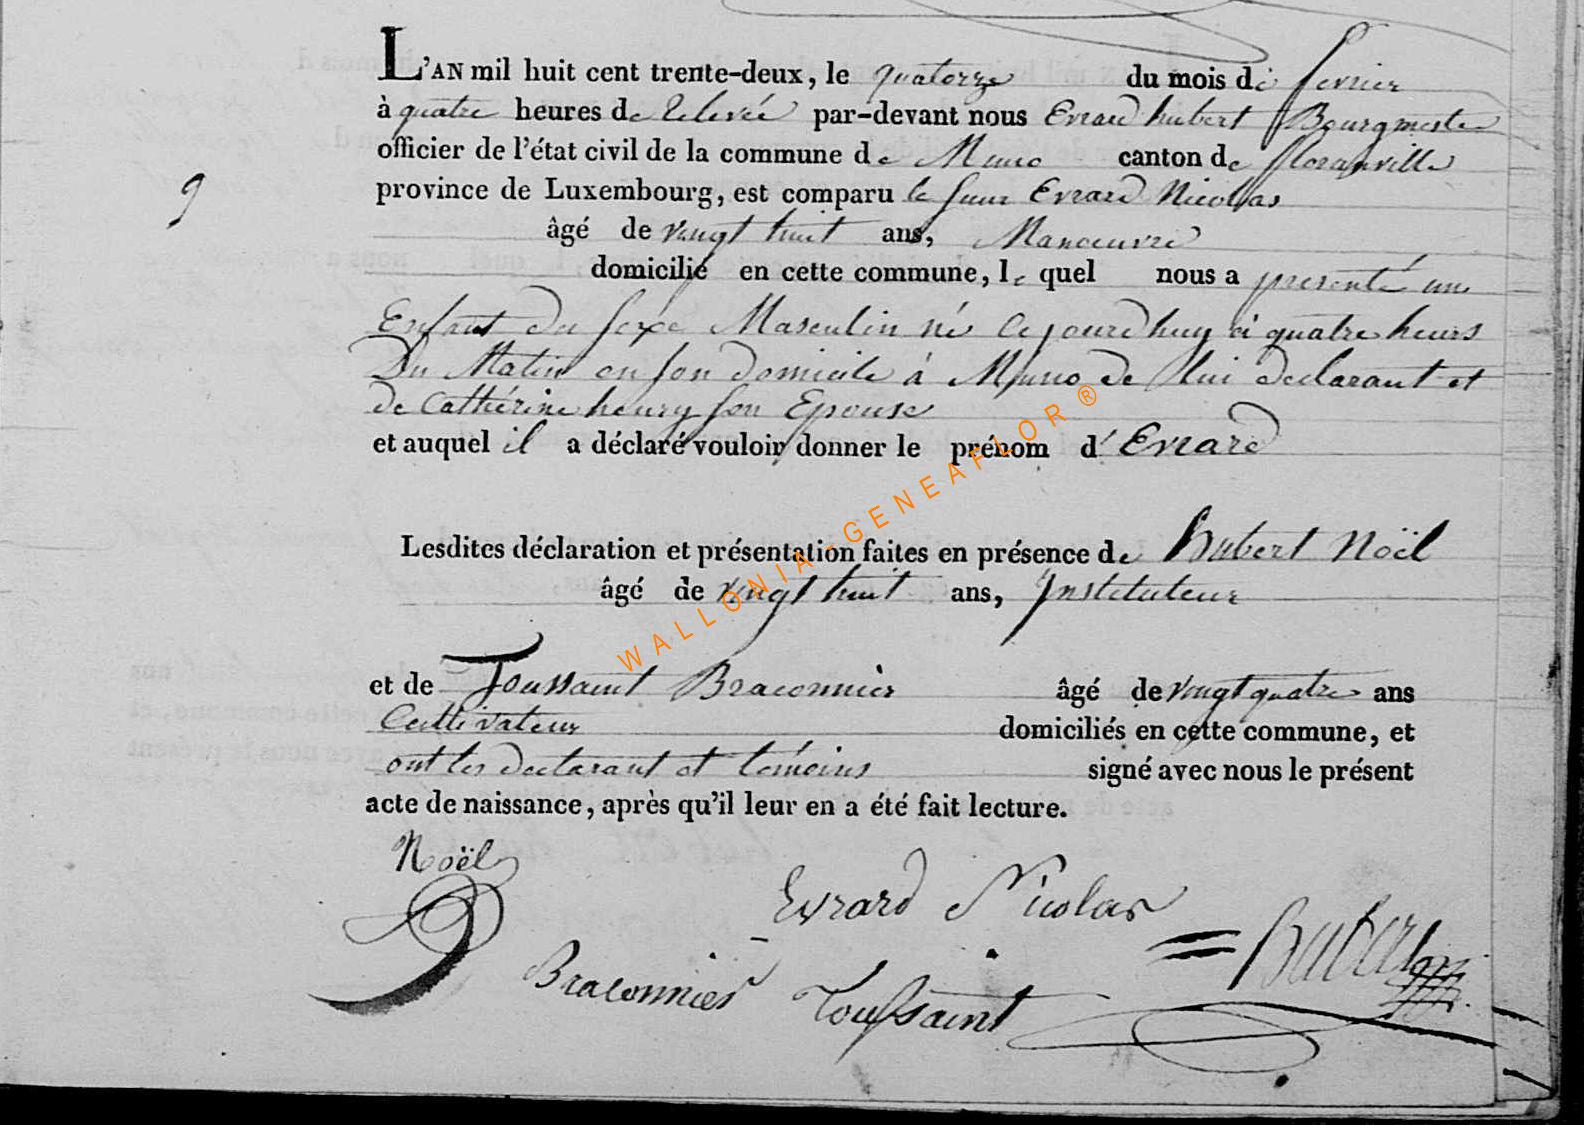 L'AN mil huit cent trente-deux, le quatorze du mois de fevrier
à quatre heures de relevée par-devant nous Evrard hubert Bourgmestre
officier de l'état civil de la commune de Muno canton de florenville
9
province de Luxembourg, est comparu le sieur Evrard Nicollas
âgé de vingt huit ans, Manoeuvre
domicilié en cette commune, le quel nous a presenté un
Enfant du sexe Masculin né cejourdhuy à quatre heurs
Du Matin en son domicile à Muno de lui declarant et
de Cathérine henry son Epouse
et auquel il a déclaré vouloir donner le prénom d'Evrard
Lesdites déclaration et présentation faites en présence de Hubert Noël
âgé de vingt huit ans, Instituteur
et de Toussaint Braconnier âgé de vingt quatre ans
Cultivateur domiciliés en cette commune, et
ont les declarant et témoins signé avec nous le présent
acte de naissance, après qu'il leur en a été fait lecture.
Noël
Evrard Nicolas
Braconnier Toussaint
WALLONIA-GENEAFLOR®